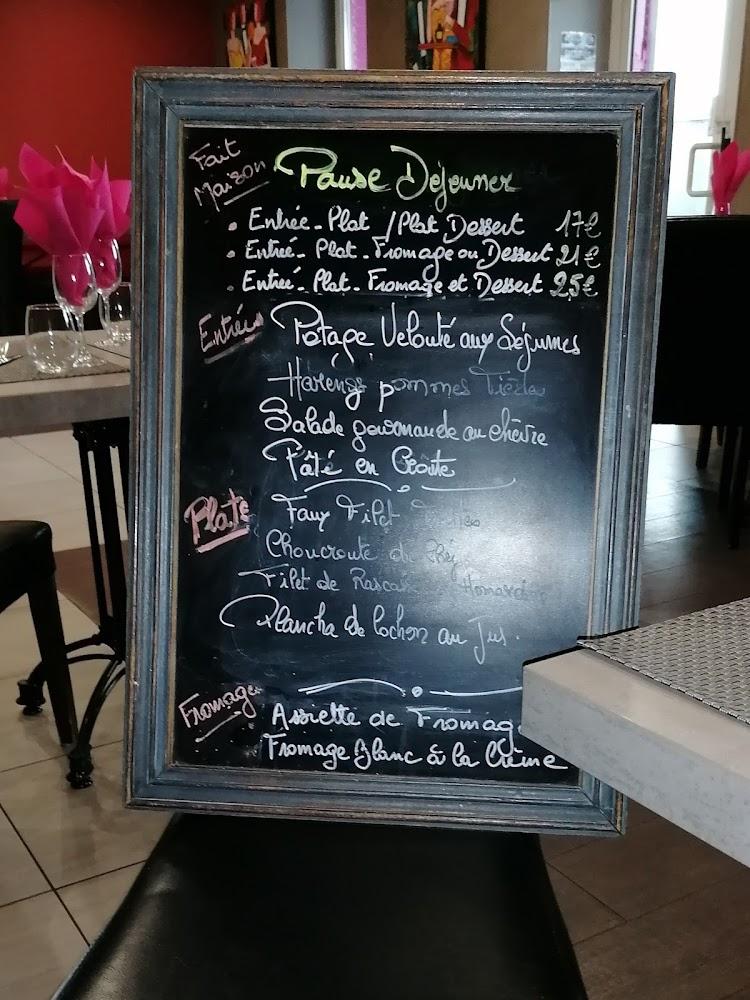 Fait
Maison
Pause Déjeuner
• Entrée - Plat / Plat Dessert 17€
• Entrée - Plat - Fromage ou Dessert 21€
• Entrée - Plat - Fromage et Dessert 25€
Entrée
Potage Velouté aux Légumes
Harengs pommes Tièdes
Salade gourmande au chèvre
Pâté en Croûte
Plats
Faux Filet
Choucroute de
Filet de Rascasse Homardine
Plancha de Cochon au Jus.
Fromage
Assiette de Fromag
Fromage Blanc à la Crème